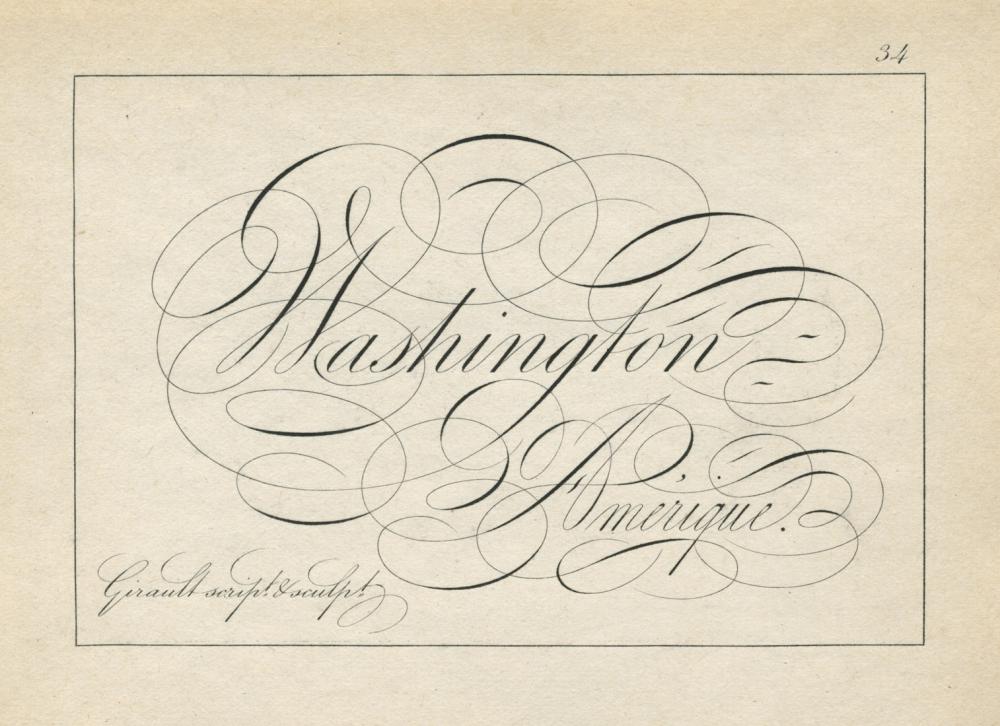 34
Washington
Amérique.
Girault script. & sculpt.